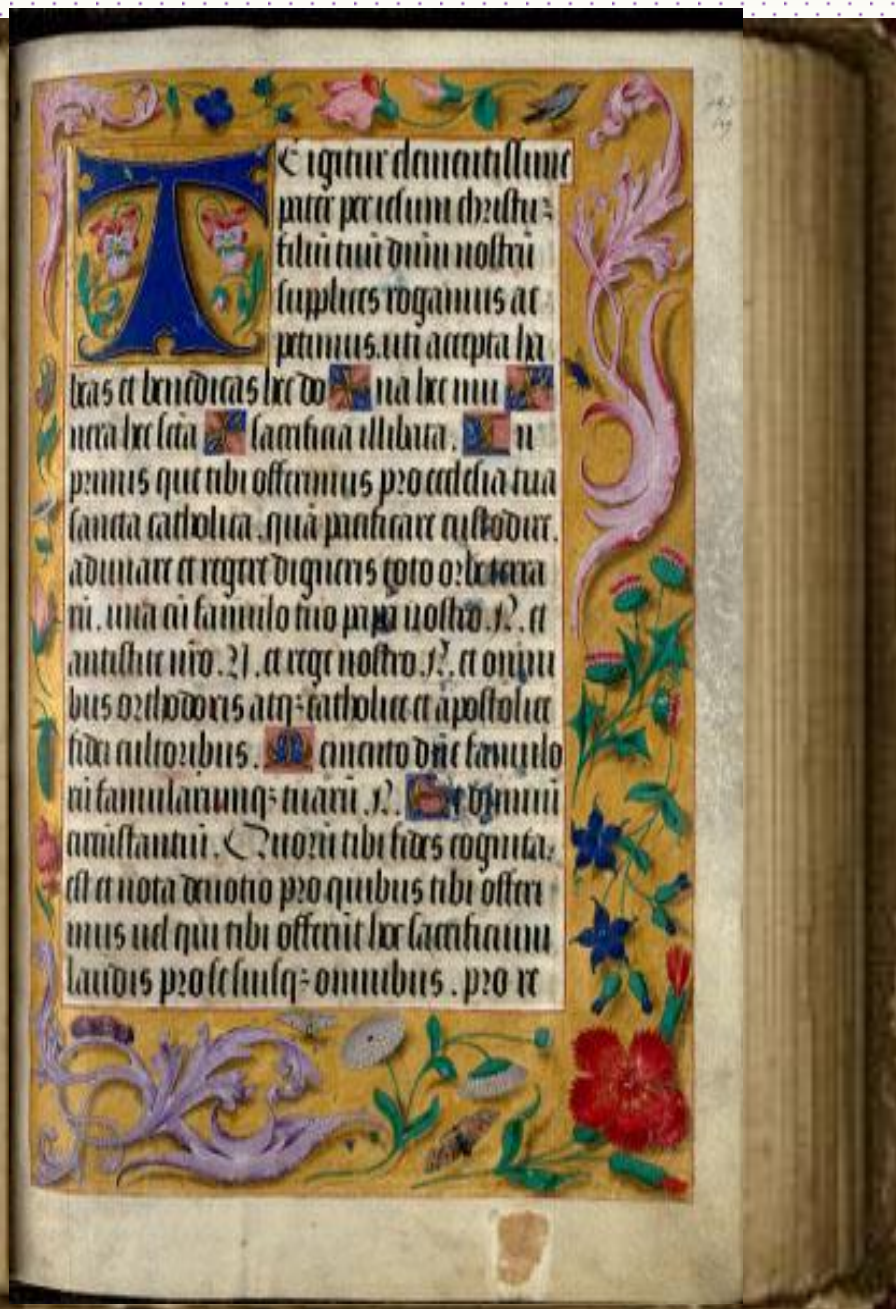 TE igitur clementissime
pater per iesum christu
filiū tuū dn̄m nostrū
supplices rogamus ac
petimus. uti accepta ha
beas et benedicas hec do na hec mu
nera hec scta sacrificia illibata. In
primis que tibi offerimus pro ecclesia tua
sancta catholica. quā pacificare custodire.
adunare et regere digneris toto orbe terra
rū. una cū famulo tuo papa nostro .N. et
antistite nr̄o .N. et rege nostro .N. et omni
bus orthodoxis atq; catholice et apostolice
fidei cultoribus. Memento dn̄e famulo
rū famularumq; tuarū .N. Et omniū
circūstantiū. Quorū tibi fides cognita
est et nota deuotio pro quibus tibi offeri
mus uel qui tibi offerūt hoc sacrificium
laudis pro se suisq; omnibus. pro re